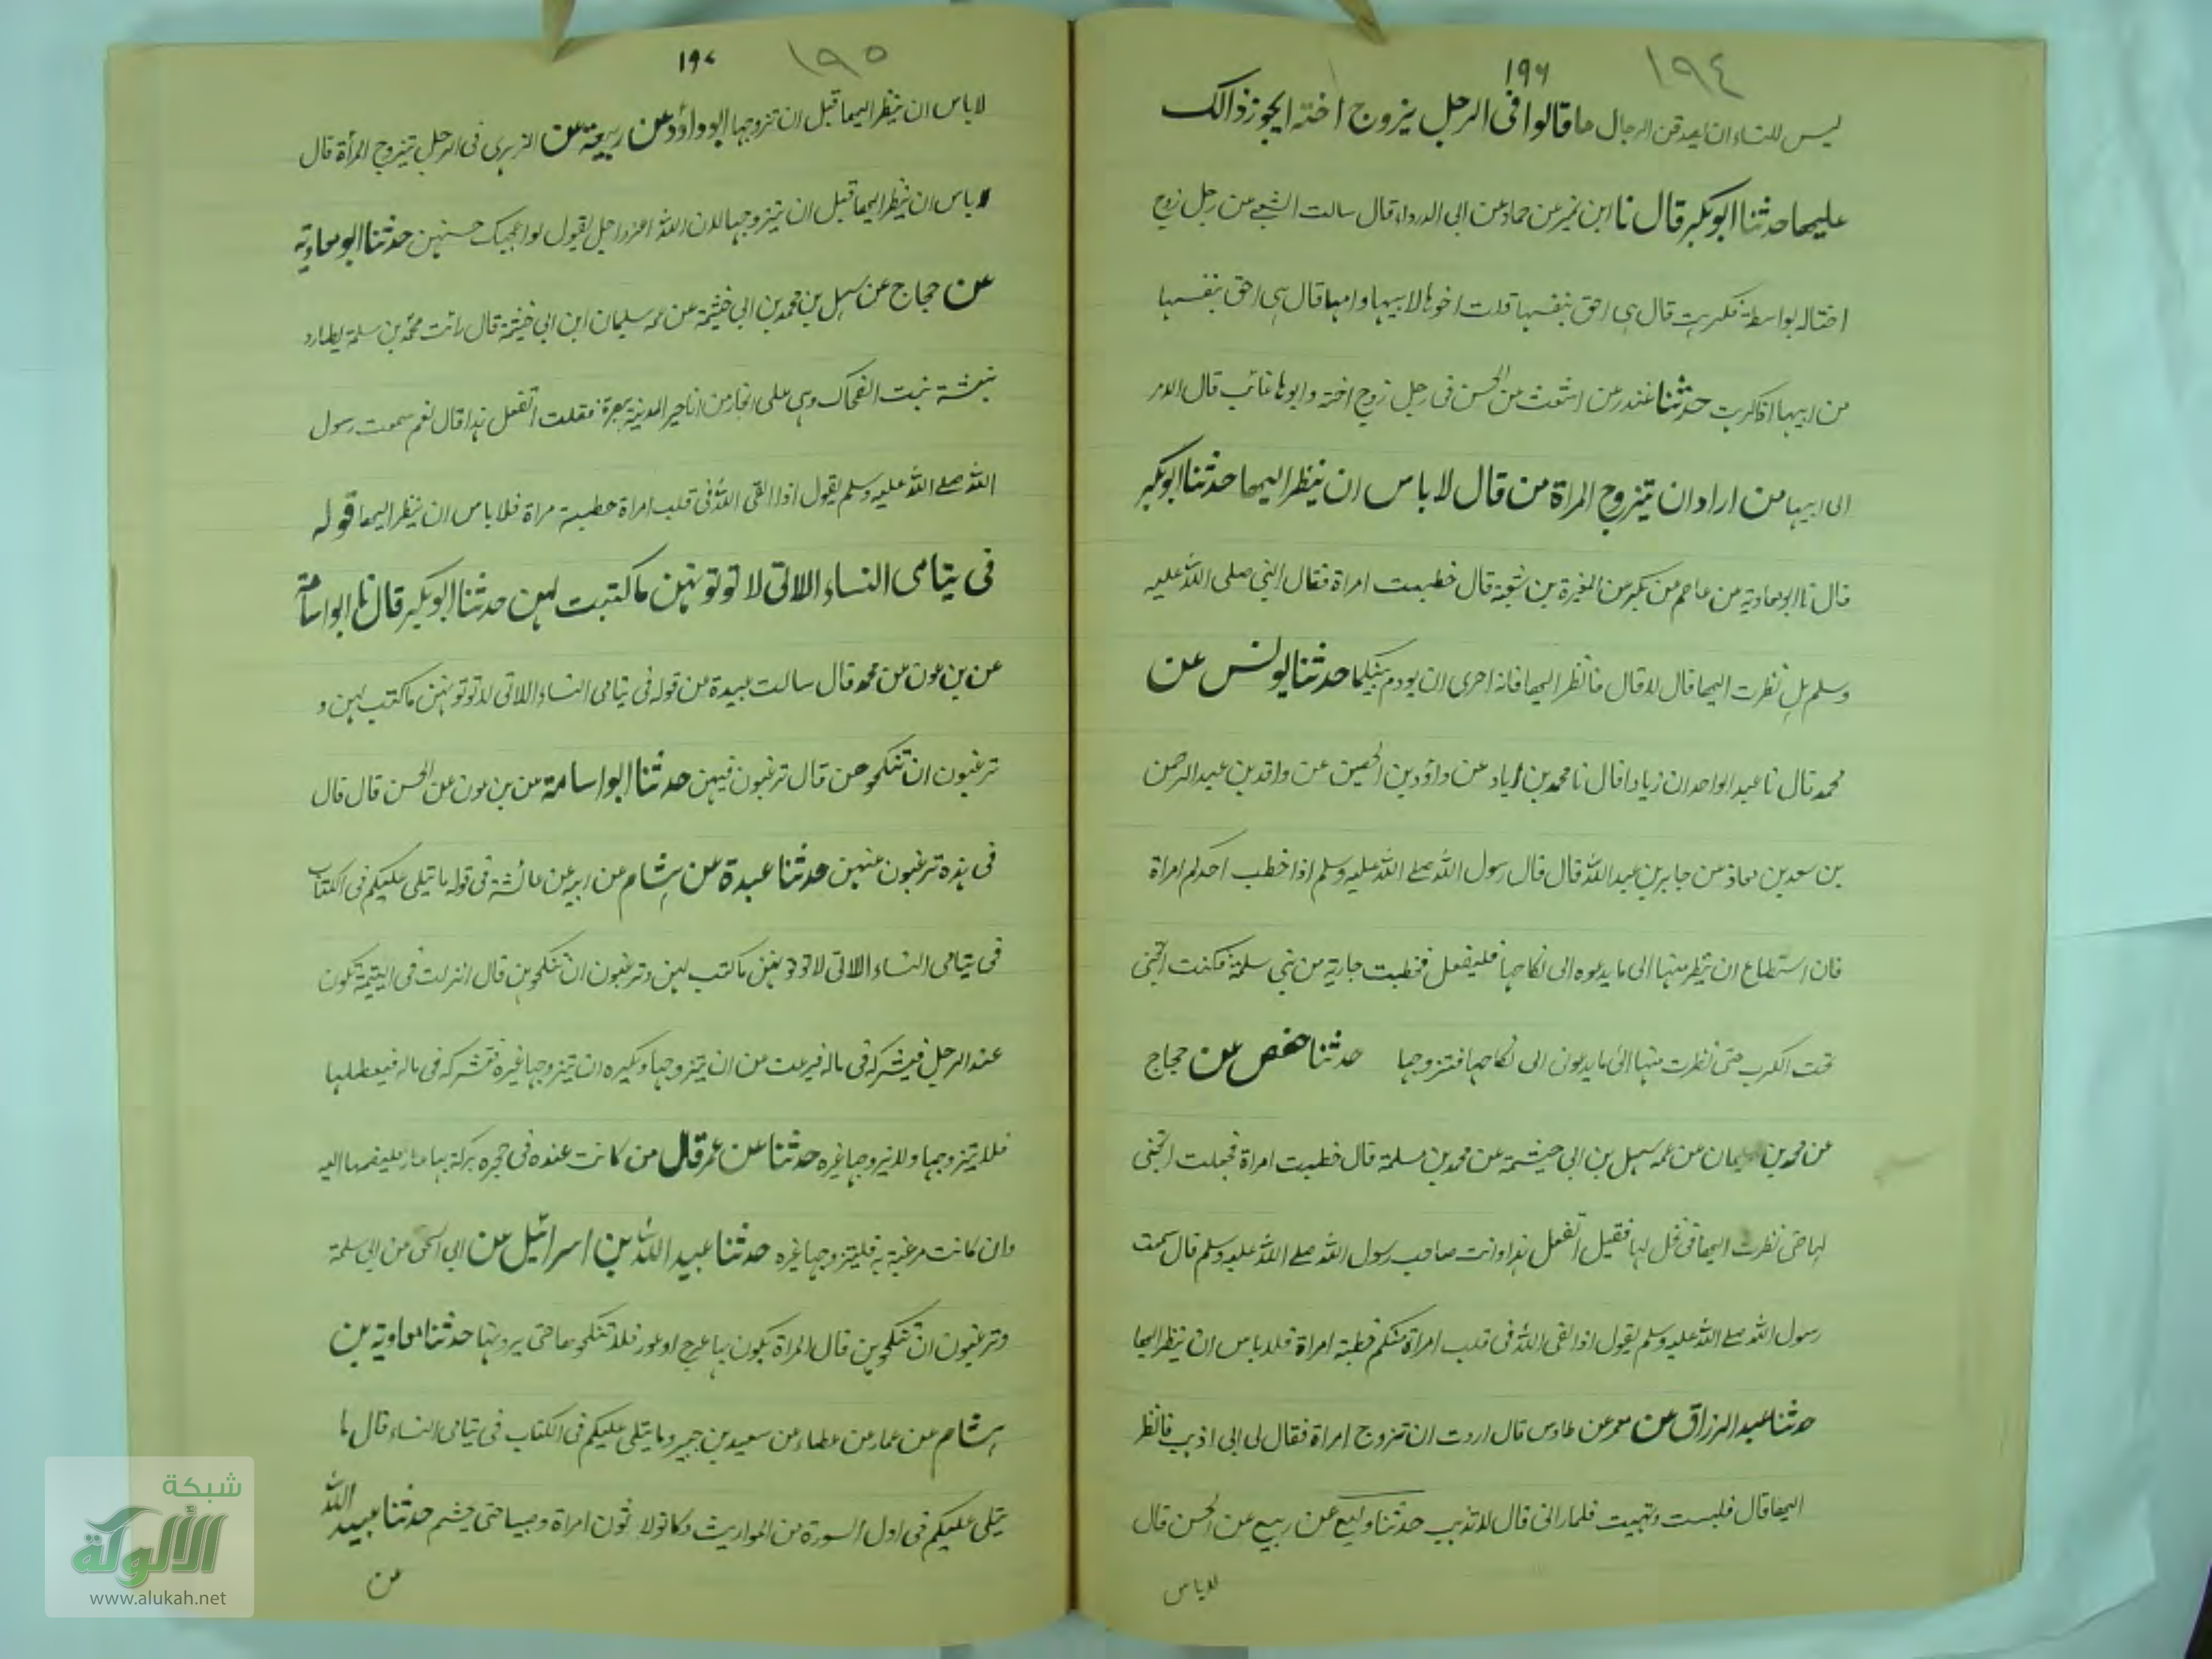 ١٩٤
١٩٦
ليس للنساء ان يعدقن الرجال ما قالوا فى الرجل يزوج اخته ايجوز ذالك
عليها حدثنا ابو بكر قال نا ابن نمير عن حماد عن ابى الدرداء قال سالت الشعبے عن رجل زوج
اختاله بواسطة فكرهت قال هى احق بنفسها قلت اخوها لابيها وامها قال هى احق بنفسها
من ابيها اذا كرهت حدثنا غندر عن اشعث عن الحسن فى رجل زوج اخته وابوها غائب قال الامر
الى ابيها من اراد ان يتزوج المراة من قال لا باس ان ينظر اليها حدثنا ابو بكر
قال نا ابو معاوية عن عاصم عن بكر عن المغيرة بن شعبة قال خطبت امراة فقال النبى صلى الله عليه
وسلم هل نظرت اليها قال لا قال فانظر اليها فانه احرى ان يودم بينكما حدثنا يونس عن
محمد قال نا عبد الواحد ان زيادا قال نا محمد بن عن داؤد بن الحصين عن واقد بن عبد الرحمن
بن سعد بن معاذ عن جابر بن عبد الله قال قال رسول الله صلے الله عليه وسلم اذا خطب احدكم امراة
فان استطاع ان ينظر منها الى ما يدعوه الى نكاحها فليفعل فخطبت جارية من بنى سلمة فكنت اتخبى
تحت الكرب حتى نظرت منها الى ما يدعون الى نكاحها فتزوجها حدثنا حفص عن حجاج
عن محمد بن سليمان عن عمه سهل بن ابى حيثمة عن محمد بن مسلمة قال خطبت امراة فجعلت اتخبى
لها حتى نظرت اليها فى نخل لها فقيل اتفعل هذا وانت صاحب رسول الله صلے الله عليه وسلم قال سمعت
رسول الله صلے الله عليه وسلم يقول اذا القى الله فى قلب امراة منكم خطبة امراة فلا باس ان ينظر اليها
حدثنا عبد الرزاق عن معمر عن طاوس قال اردت ان تزوج امراة فقال لى ابى اذهب فانظر
اليها قال فلبست وتهيت فلما رانى قال لا تذهب حدثنا وكيع عن ربيع عن الحسن قال
لا باس
١٩٥
١٩٧
لا باس ان ينظر اليها قبل ان تزوجها ابو داؤد عن ربيعة عن الزهرى فى الرجل يتزوج المرأة قال
لا باس ان ينظر اليها قبل ان يتزوجها لان الله عز وجل يقول لو اعجبك حسنهن حدثنا ابو معاوية
عن حجاج عن سهل بن محمد بن ابى خيثمة عن عمه سليمان ابن ابى خيثمة قال رائت محمد بن سلمة يطارد
بنت الضحاك وهى على انجار من اناجير المدينة ببصره فقلت اتفعل هذا قال نعم سمعت رسول
الله صلے الله عليه وسلم يقول اذا القى الله فى قلب امراة خطبة مراة فلا باس ان ينظر اليها قوله
فى يتامى النساء الاتى لا توتونهن ما كتبت لهن حدثنا ابو بكر قال نا ابو اسامة
عن بن عون عن محمد قال سالت عبيدة عن قوله فى يتامى النساء اللاتى لا توتونهن ما كتب لهن و
ترغبون ان تنكحوهن قال ترغبون فيهن حدثنا ابو اسامة عن بن عون عن الحسن قال قال
فى هذه ترغبون عنهن حدثنا عبدة عن هشام عن ابيه عن عائشة فى قوله ما يتلى عليكم فى الكتاب
فى يتامى النساء اللاتى لا توتونهن ما كتب لهن وترغبون ان تنكحوهن قال انزلت فى اليتيمة تكون
عند الرجل فيشركه فى ماله فيرغب عن ان يتزوجها ويكره ان يتزوجها غيره فتشركه فى ماله فيعطلها
فلا يتزوجها ولا يزوجها غيره حدثنا عن عمر قال من كانت عنده فى حجره تركة بها عار فليضمها اليه
وان كانت مرغبة به فليتزوجها غيره حدثنا عبيد الله بن اسرائيل عن ابى اسحق عن ابى سلمة
وترغبون ان تنكحوهن قال المراة يكون بها عرج او عور فلا تنكحوها حتى يرونها حدثنا معاوية بن
هشام عن عمار عن عطاء عن سعيد بن جبير وما يتلى عليكم فى الكتاب فى يتامى النساء قال ما
يتلى عليكم فى اول السورة من المواريث وكانوا لا ثون امراة وصبيا حتى يحتلم حدثنا عبيد الله
عن
شبكة
الألوكة
www.alukah.net